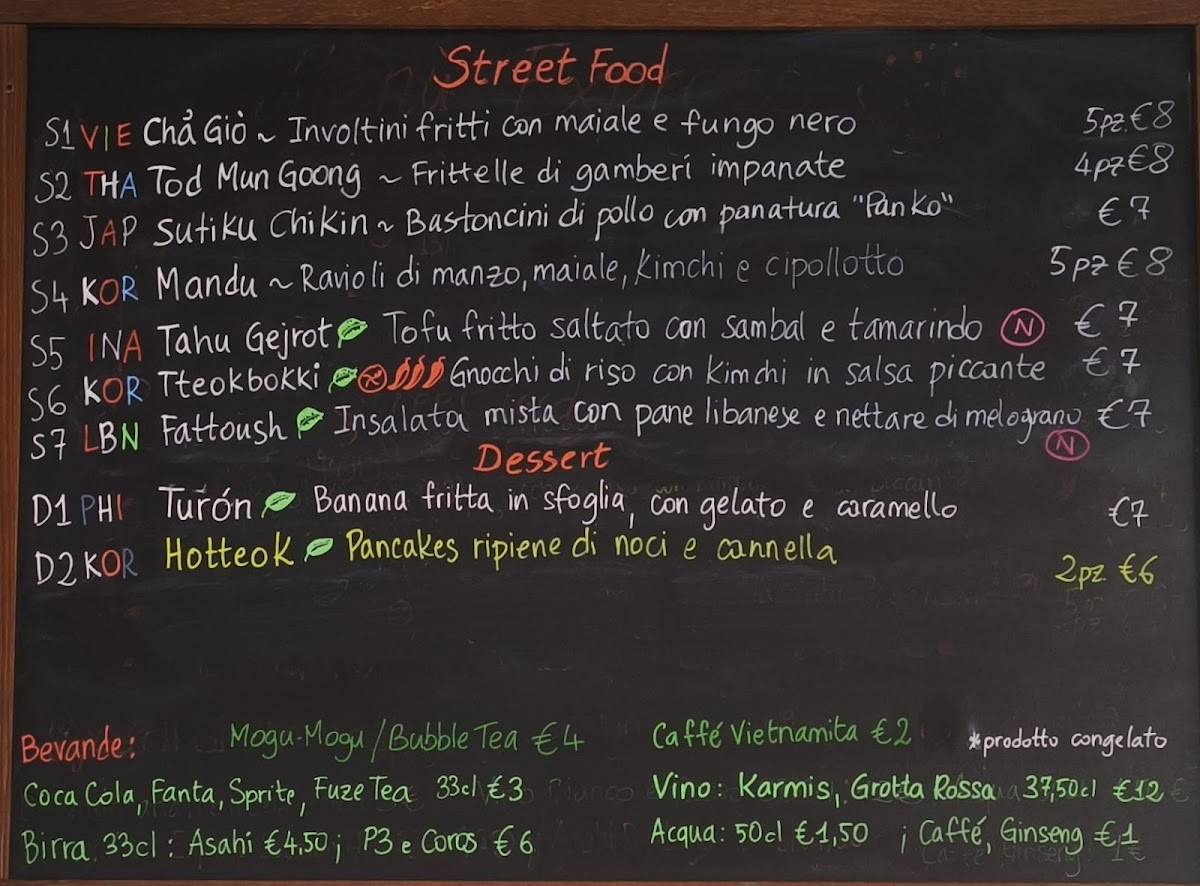 Street Food
S1 VIE Chả Giò ~ Involtini fritti con maiale e fungo nero 5pz. €8
S2 THA Tod Mun Goong ~ Frittelle di gamberi impanate 4pz €8
S3 JAP Sutiku Chikin ~ Bastoncini di pollo con panatura "Panko" €7
S4 KOR Mandu ~ Ravioli di manzo, maiale, Kimchi e cipollotto 5pz €8
S5 INA Tahu Gejrot Tofu fritto saltato con sambal e tamarindo N €7
S6 KOR Tteokbokki Gnocchi di riso con Kimchi in salsa piccante €7
S7 LBN Fattoush Insalata mista con pane libanese e nettare di melograno €7
N
Dessert
D1 PHI Turón Banana fritta in sfoglia, con gelato e caramello €7
D2 KOR Hotteok Pancakes ripiene di noci e cannella 2pz €6
Bevande: Mogu-Mogu/Bubble Tea €4
Coca Cola, Fanta, Sprite, Fuze Tea 33cl €3
Birra 33cl: Asahi €4,50; P3 e Coros €6
Caffé Vietnamita €2 *prodotto congelato
Vino: Karmis, Grotta Rossa 37,50cl €12
Acqua: 50cl €1,50 ; Caffé, Ginseng €1